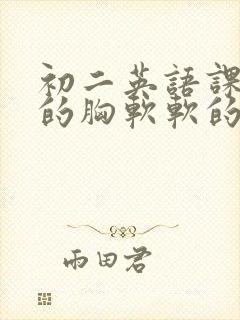 初二英語課
的胸軟軟的
雨田君